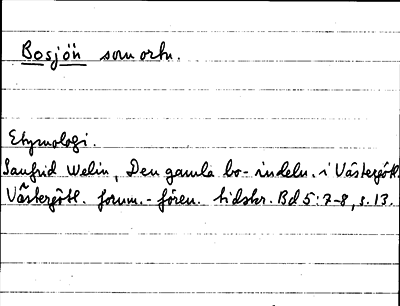 Bosjön som ortn.
Etymologi.
Sanfrid Welin, Den gamla bo-indeln. i Västergötl.
Västergötl. fornm.-fören. tidskr. Bd 5:7-8, s. 13.